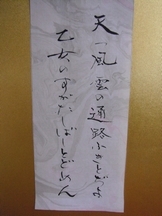 天つ風雲の通路ふきとぢよ
乙女のすがたしばしとどめん